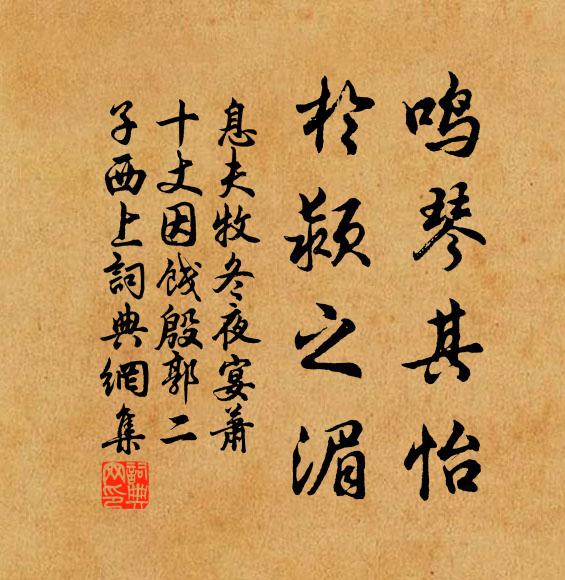 鸣琴其怡
於颍之湄
息夫牧冬夜宴萧
十丈因饯殷郭二
子西上詞典網集
詞典网印